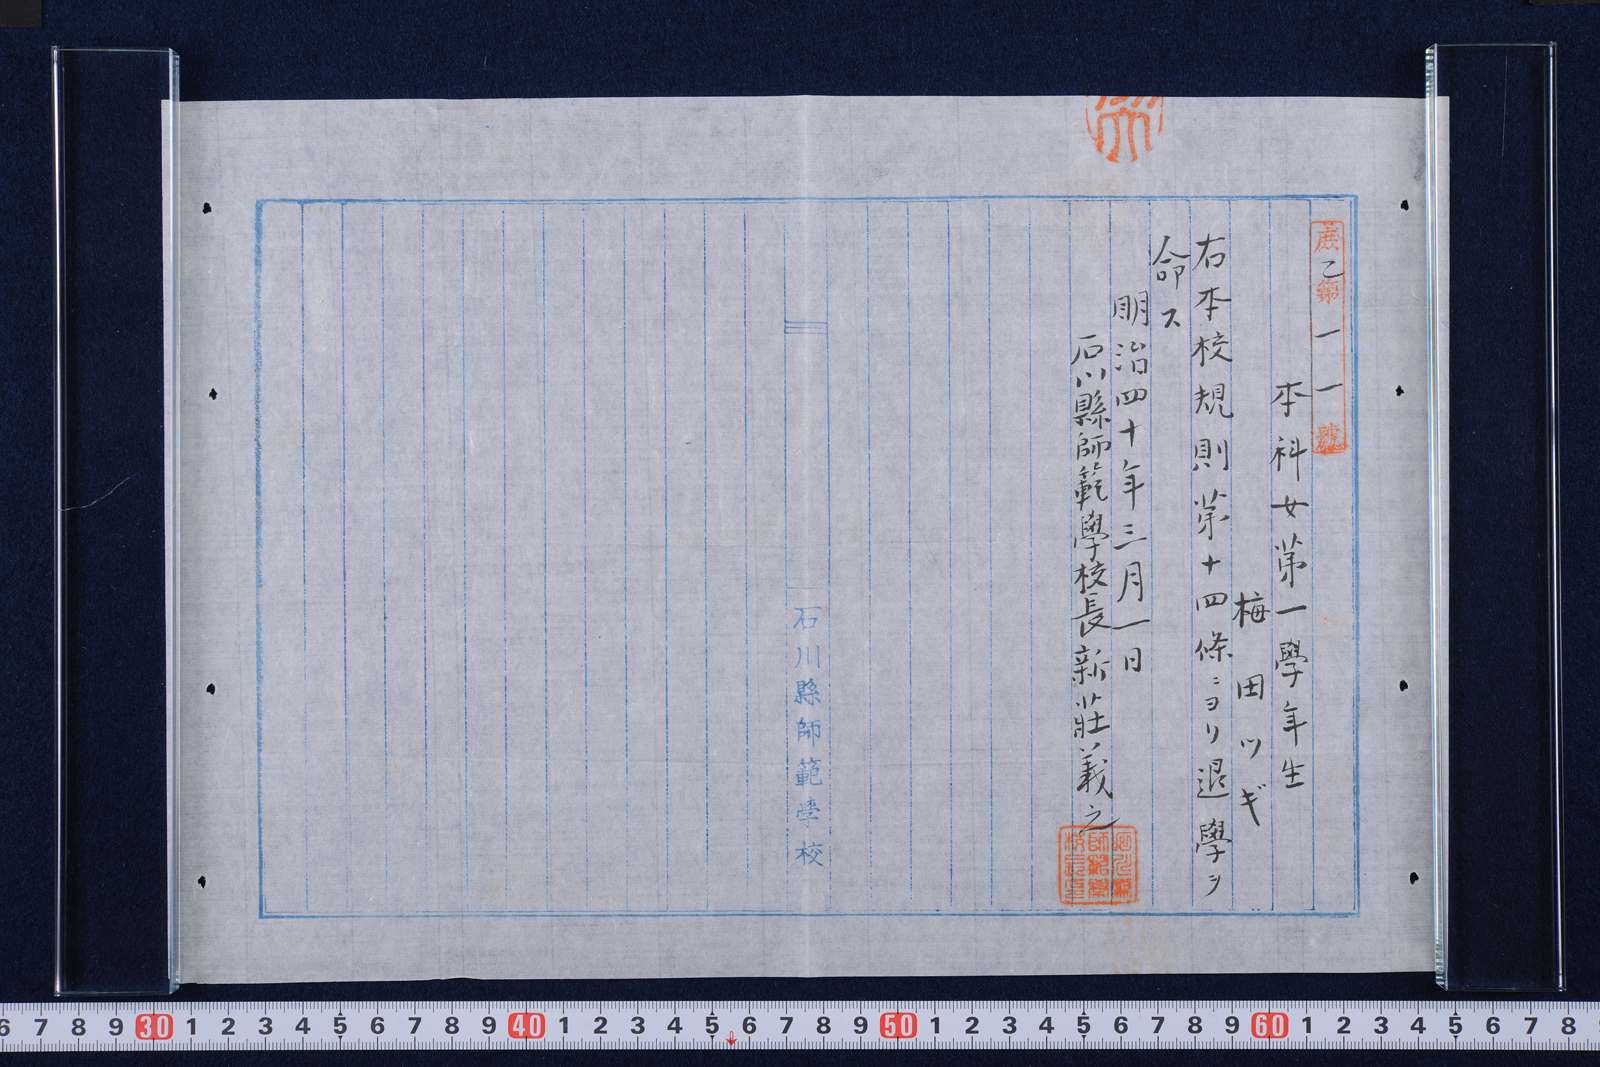 庶乙第一一號
本科女第一學年生
梅田ツギ
右本校規則第十四條ニヨリ退學ヲ
命ス
明治四十年三月一日
石川縣師範學校長新莊義之
石川縣師範學校長印
石川縣師範學校
6 7 8 9 30 1 2 3 4 5 6 7 8 9 40 1 2 3 4 5 6 7 8 9 50 1 2 3 4 5 6 7 8 9 60 1 2 3 4 5 6 7 8